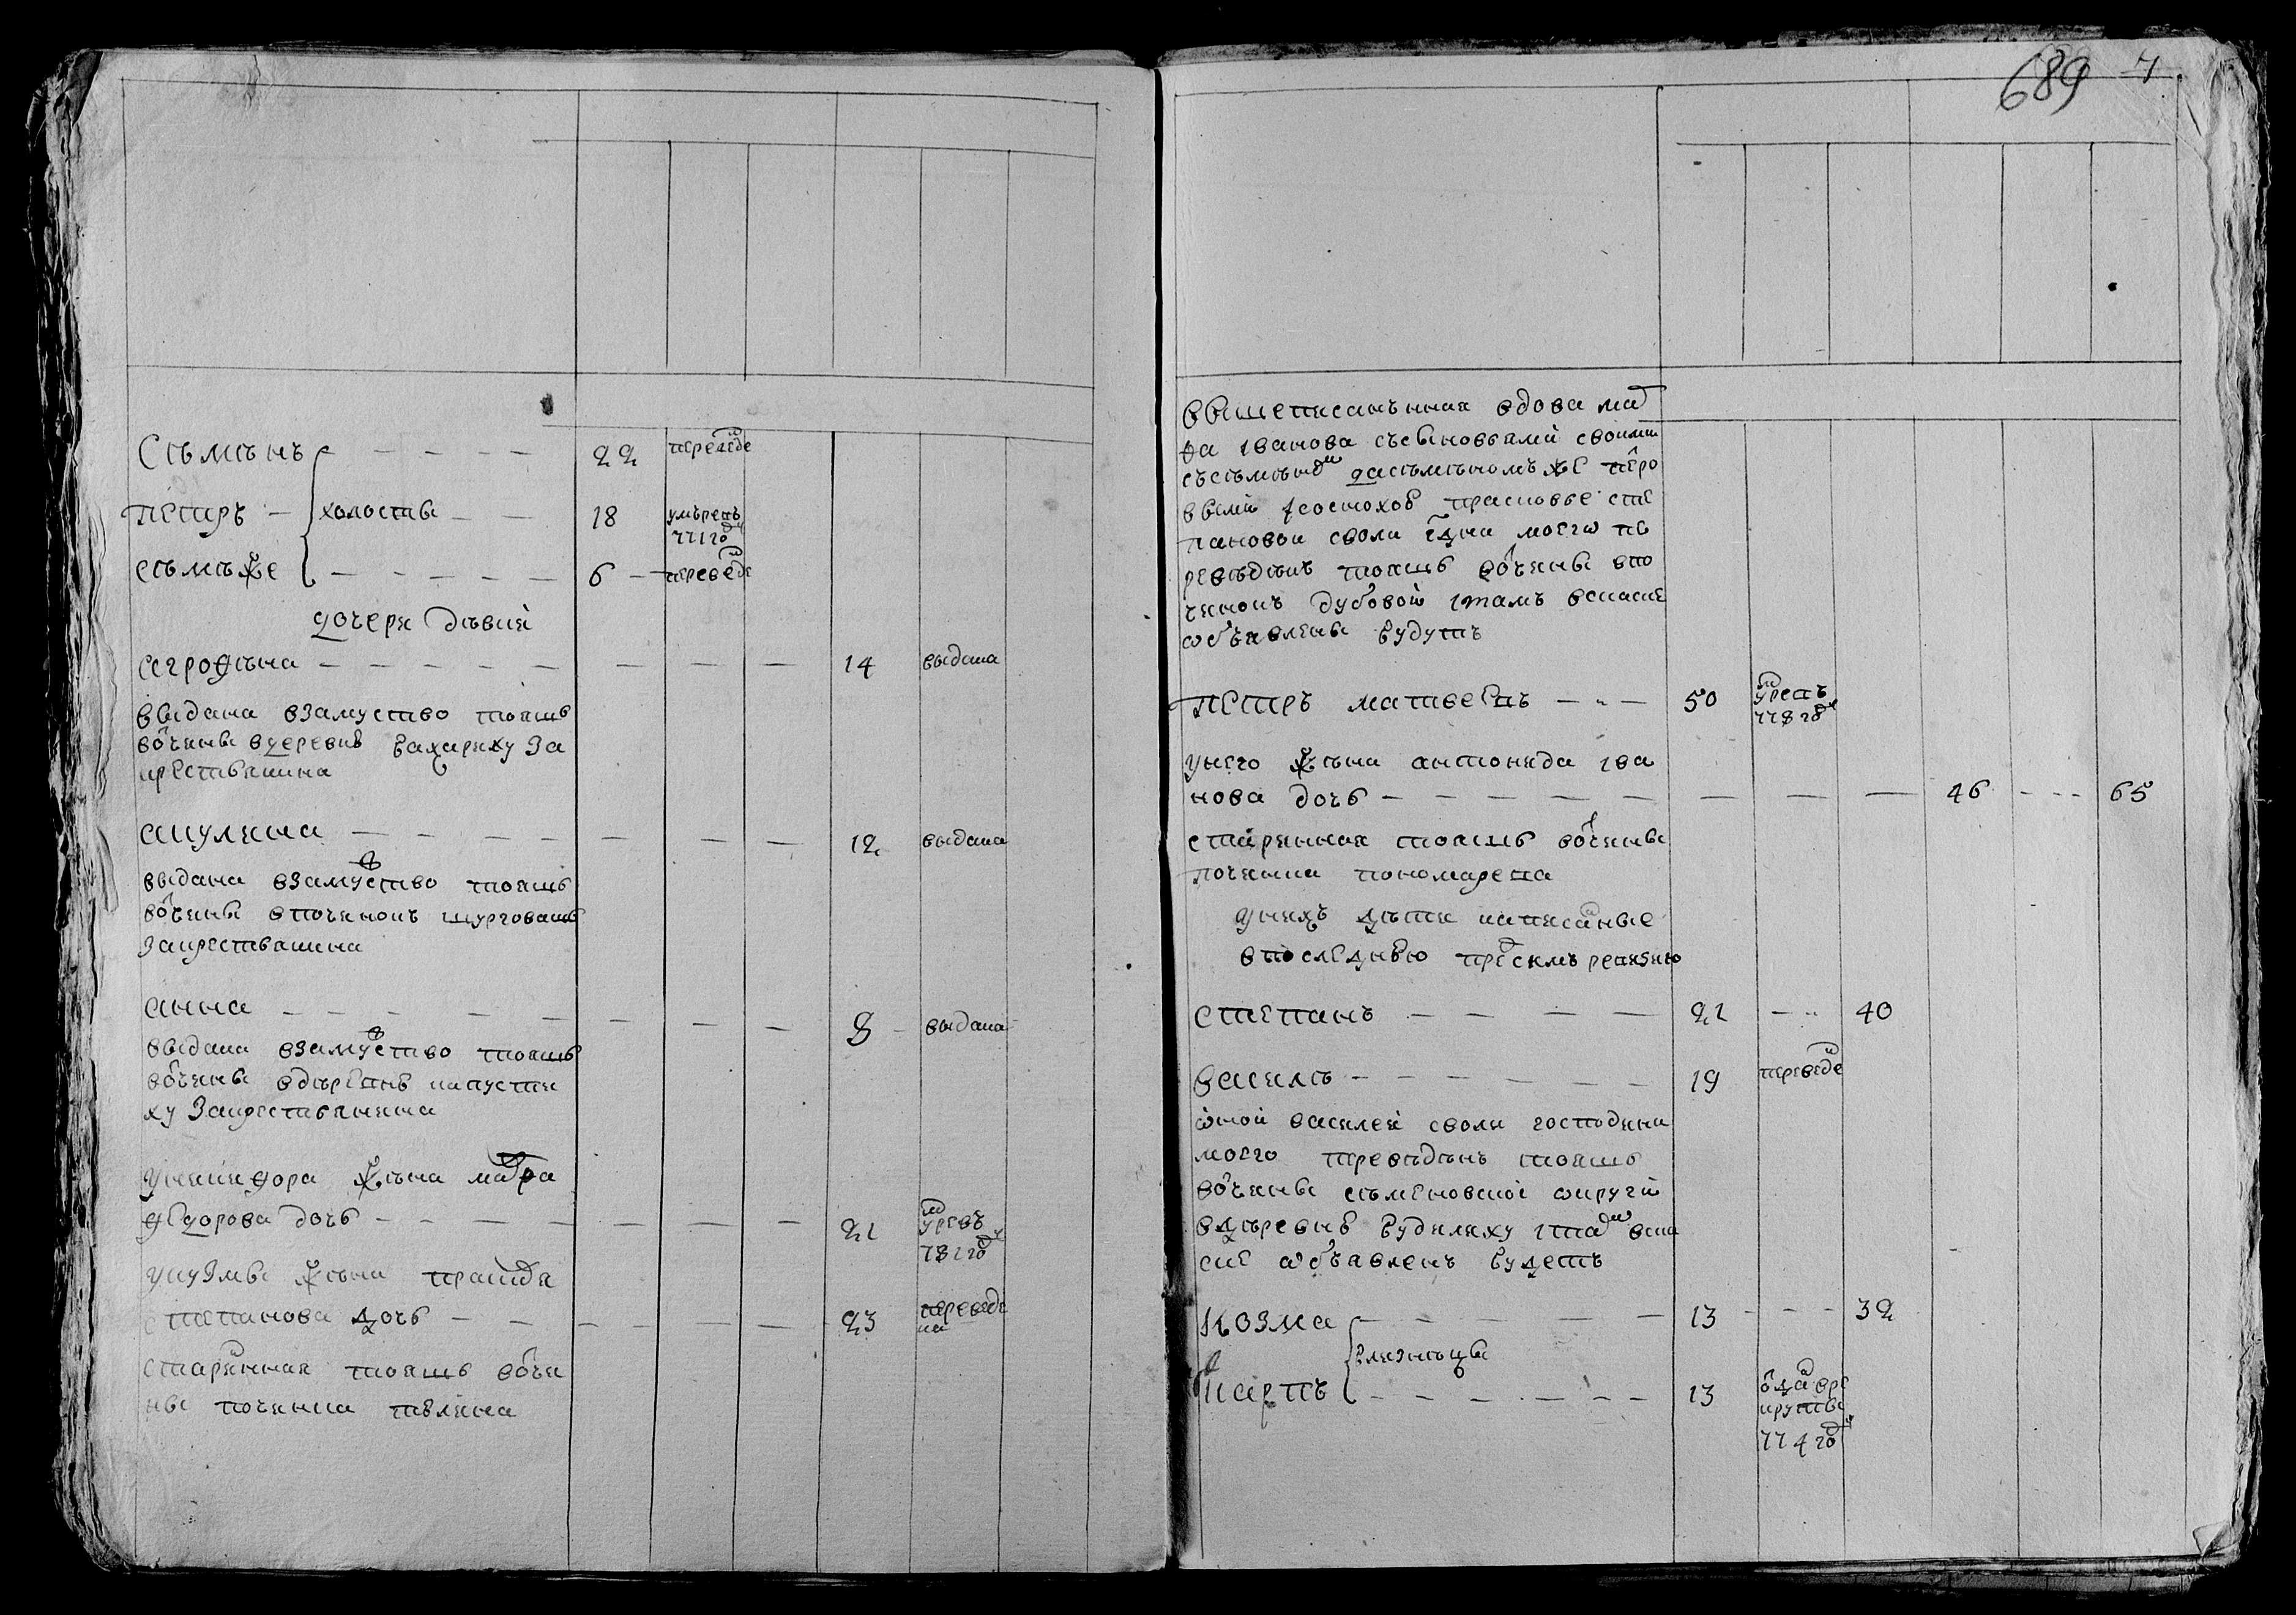 Сѣмѣнъ — — — — 22 переведе
петръ — холосты — — 18 умъре въ
771 го
сѣмѣже — — — — — 6 — переведе
дочери дѣвки
агрофѣна — — — — — — — — 14 выдана
выдана взамуство тояжъ
вочины вдеревню бахариху за
крестьянина
акулина — — — — — — — 12 выдана
выдана взамуство тояжъ
вочины впочинокъ
закрестьянина
анна — — — — — — — — 8 — выдана
выдана взамуство тояжъ
вочины вдеревню капусти
ху закрестьянина
уникифора жена мадра
федорова дочь — — — — — — — 21
го
укузмы жена праковя
степанова дочь — — — — — — — 23 переведе
на
старинная тояжъ вочи
ны починка
689 7
вышеписанънная вдова мар
фа иванова съсыновьями своими
съсѣмѣном дасѣмѣномъ же перо
выми
пановой своли гдна моего пе
реведены тояжъ вочины впо
чинокъ дубовой итамъ вскаске
объявлены будутъ
петръ матвеевъ — — — 50 умре въ
778 го
унего жена антонида ива
нова дочь — — — — — — — — 46 - - - 65
старинная тояжъ вочины
починка пономарева
унихъ дети написанные
впоследнею пред симъ ревизию
степанъ — — — — 21 — - 40
василѣ — — — — — — 19 переведе
оной василей своли господина
моего переведенъ тояжъ
вочины сѣменовской округи
вдеревню будилиху итам вска
ске объявленъ будетъ
козма — — — — — 13 - - - 32
близнецы
карпъ — — — — — — 13 отда вре
круты
774 го